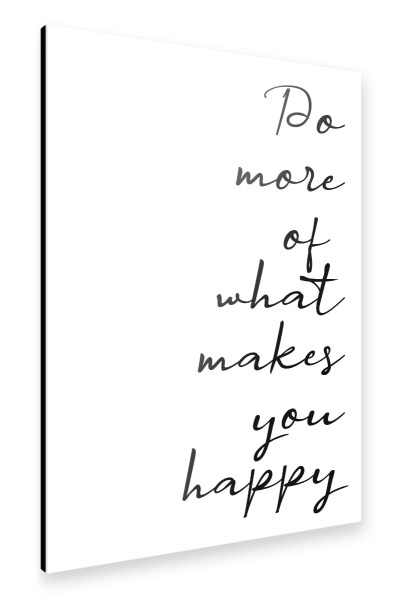 Do
more
of
what
makes
you
happy